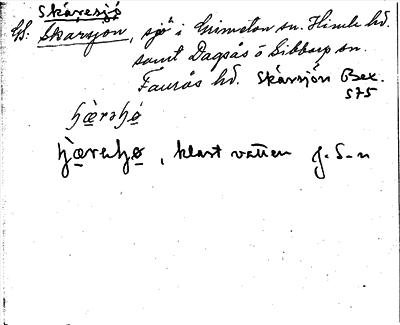 Skäresjö
Gs. Skärsjön, sjö i Grimeton sn. Himle hd.
samt Dagsås o Sibbarp sn.
Faurås hd. Skärsjön Bex.
575
ɧæ̀rəɧø
ɧæ̀rəɧø, klart vatten g. S-n